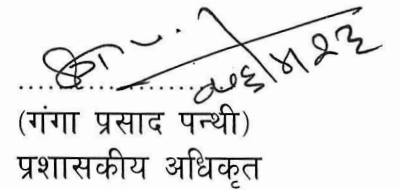 ....................
(गंगा प्रसाद पन्थी)
प्रशासकीय अधिकृत